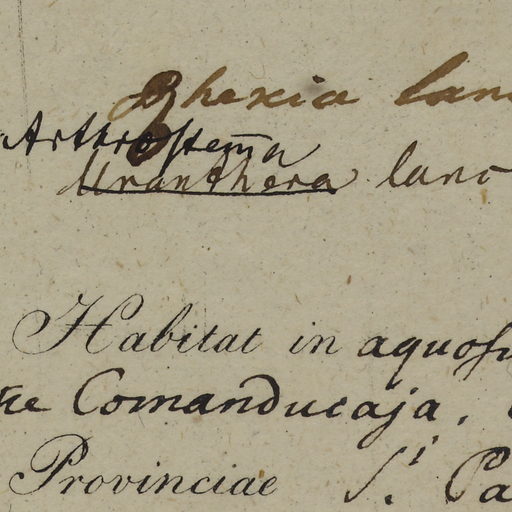 Rhexia lan
Arthrostem̅a
Uranthera lanc
Habitat in aquoſi
Comanducaja,
Provinciae S.i Pa